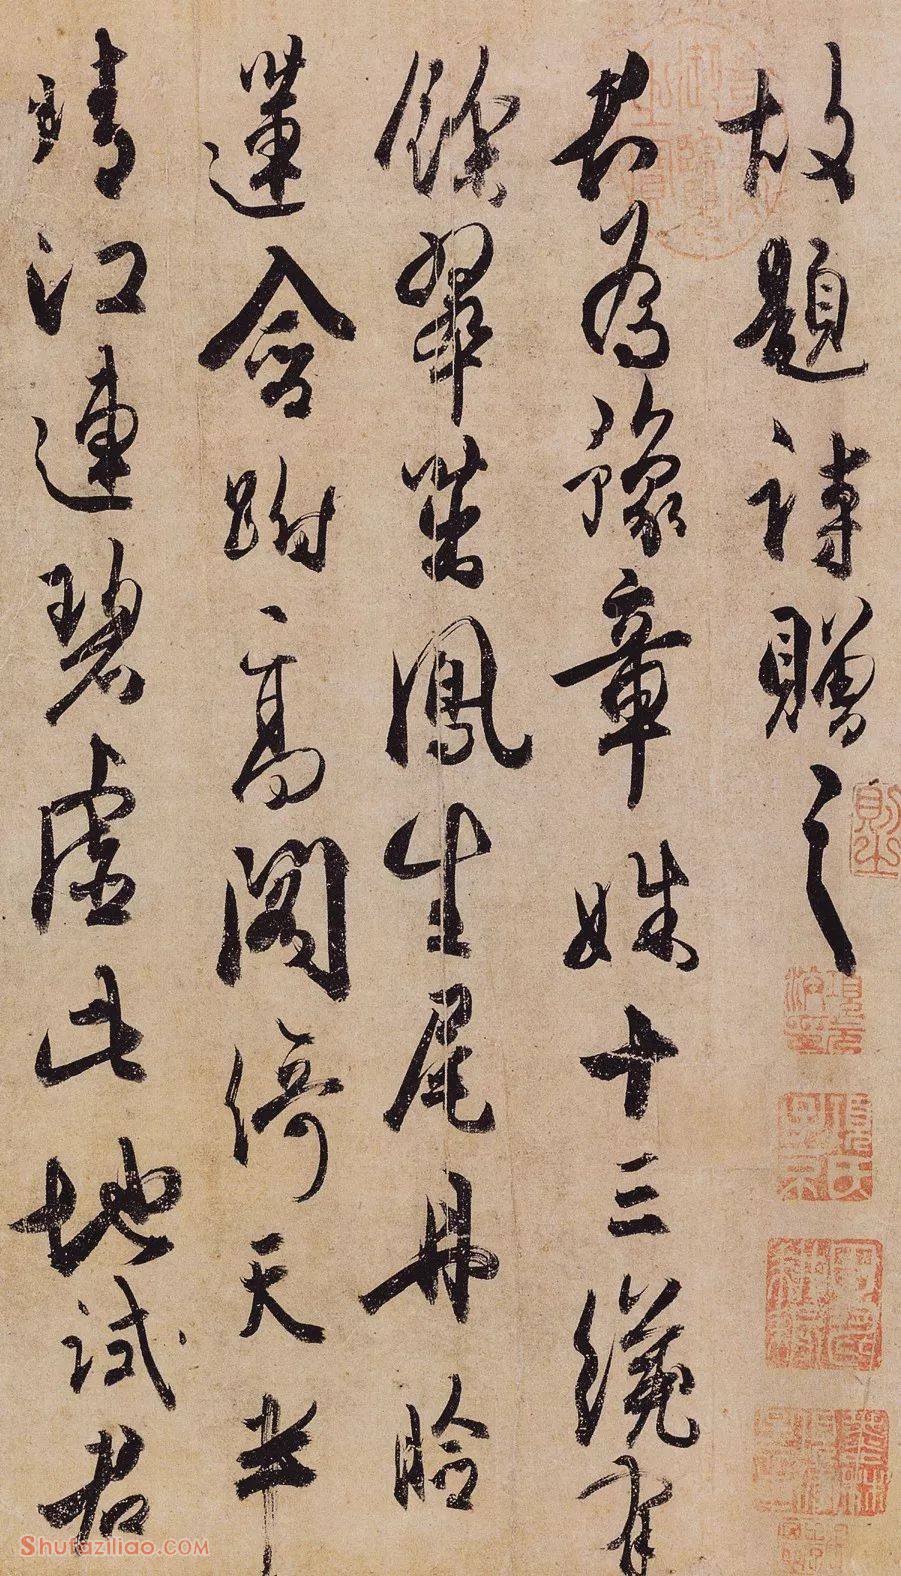 故題詩贈之
君為豫章姝十三纔有
餘翠茁鳳生尾丹臉
蓮含跗高閣倚天半
晴江連碧虛此地試君
Shufaziliao.COM